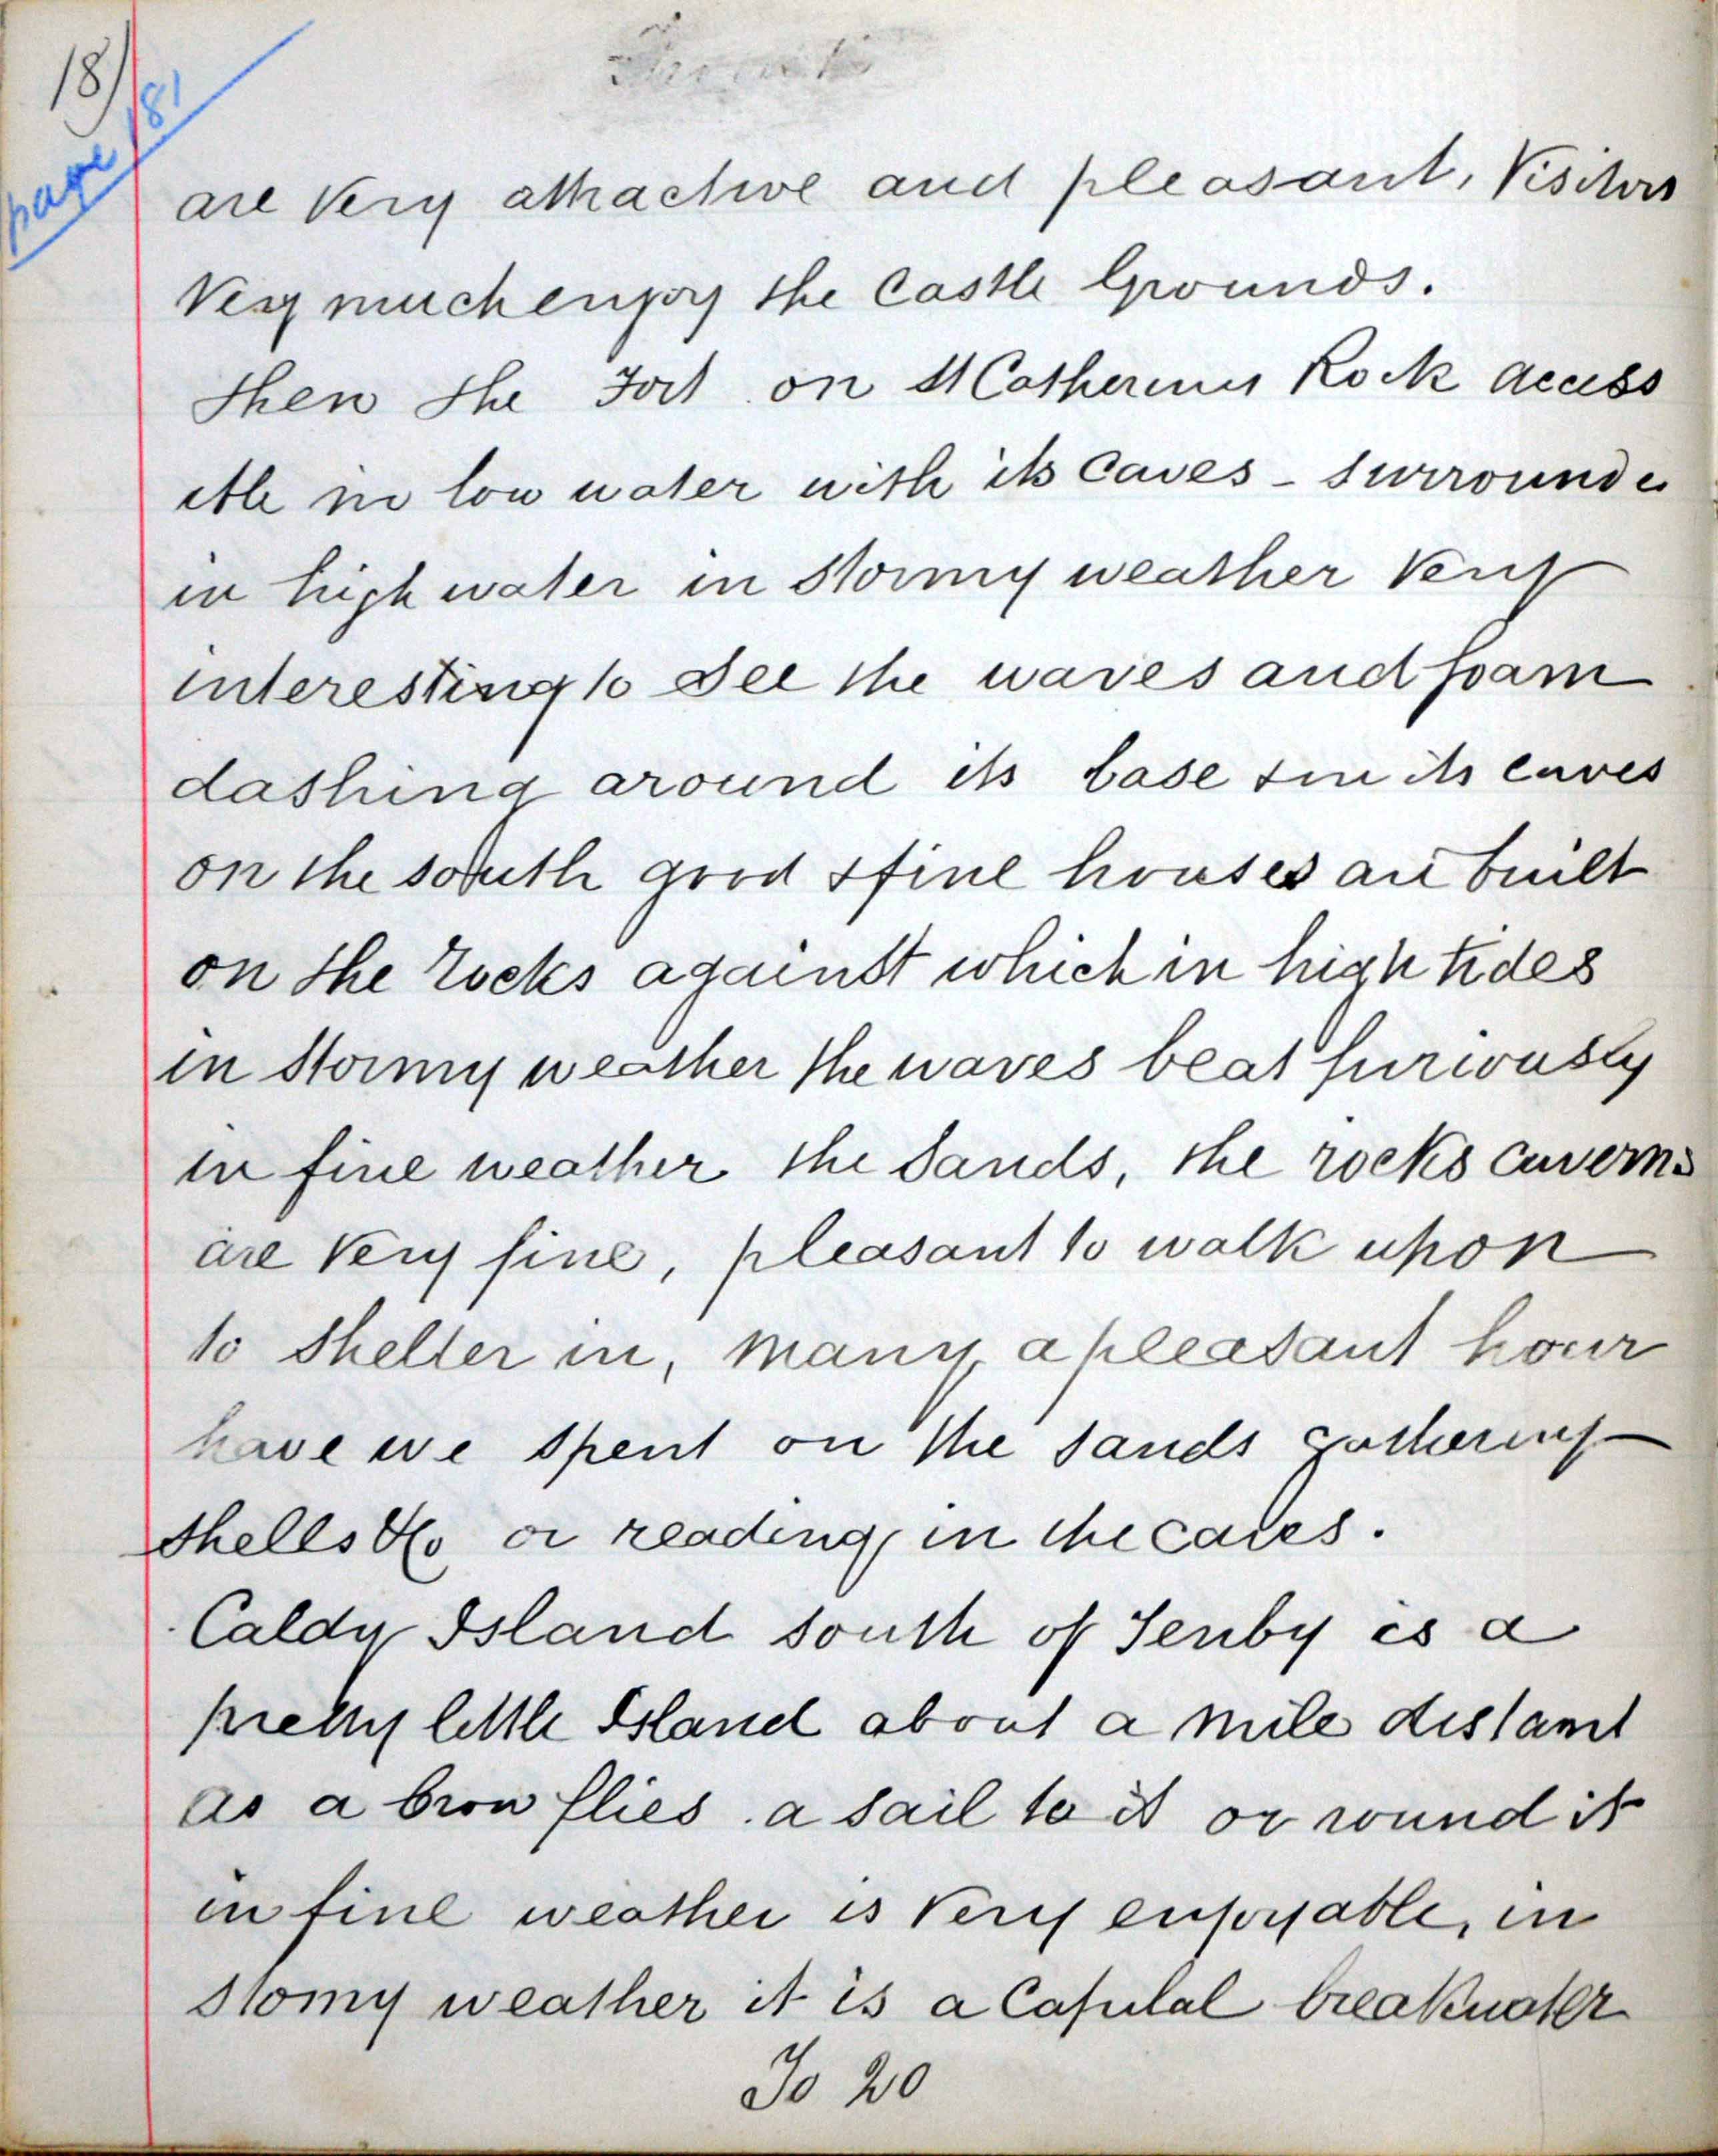 18)
page 181
are very attractive and pleasant, Visitors
Very much enjoy the Castle Grounds.
Then the Fort on St Catherines Rock access
ible in low water with its Caves - surrounde
in high water in stormy weather very
interesting to see the waves and foam
dashing around its base & in its caves
on the south good & fine houses are built
on the rocks against which in high tides
in stormy weather the waves beat furiously
in fine weather the Sands, the rocks caverns
are very fine, pleasant to walk upon
to shelter in, many a pleasant hour
have we spent on the sands gathering
shells &c or reading in the caves.
Caldy Island south of Tenby is a
pretty little Island about a mile distant
as a Crow flies . a sail to it or round it
in fine weather is very enjoyable, in
stomy weather it is a Capital breakwater
To 20